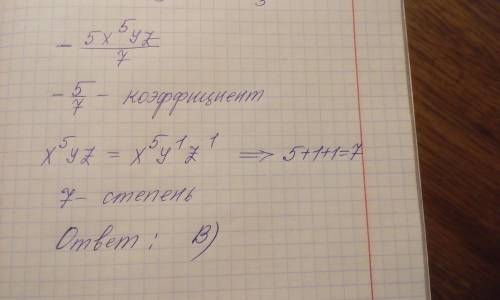 - 5x⁵yz/7
- 5/7 - коэффициент
x⁵yz = x⁵y¹z¹ ⟹ 5+1+1=7
7- степень
Ответ: В)